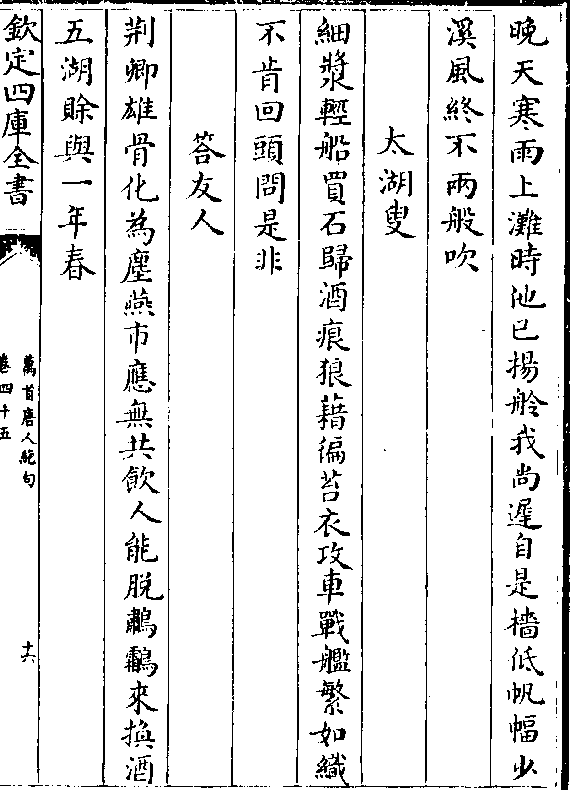 晚天寒雨上灘時他已揚舲我尚遲自是檣低帆幅少
溪風終不兩般吹
太湖叟
細槳輕船買石歸酒痕狼藉徧苔衣攻車戰艦繁如織
不肯回頭問是非
荅友人
荆卿雄骨化為塵燕市應無共飲人能脱鷫鸘來換酒
五湖賖與一年春
欽定四庫全書
萬首唐人絶句
卷四十五
十六